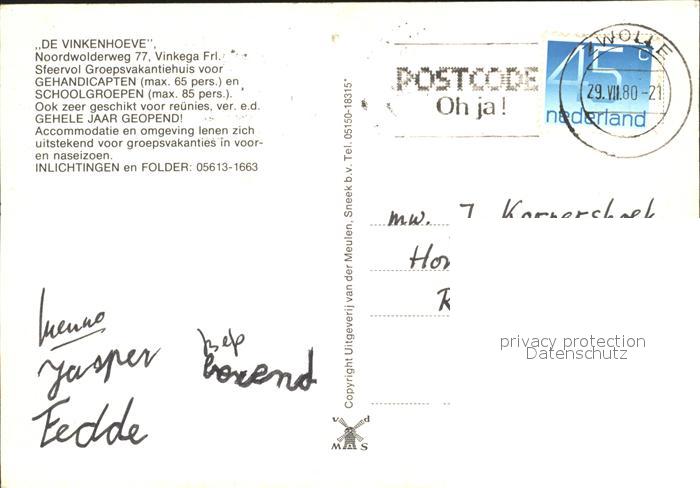 „DE VINKENHOEVE”,
Noordwolderweg 77, Vinkega Frl.
Sfeervol Groepsvakantiehuis voor
GEHANDICAPTEN (max. 65 pers.) en
SCHOOLGROEPEN (max. 85 pers.).
Ook zeer geschikt voor reünies, ver. e.d.
GEHELE JAAR GEOPEND!
Accommodatie en omgeving lenen zich
uitstekend voor groepsvakanties in voor-
en naseizoen.
INLICHTINGEN en FOLDER: 05613-1663
menno
Jasper
Fedde
bep
barend
Copyright Uitgeverij van der Meulen, Sneek b.v. Tel. 05150-18315*
v d
W S M
POSTCODE
Oh ja!
45 c
nederland
ZWOLLE
29.VII.80-21
mw. J. Kornershoek
privacy protection
Datenschutz